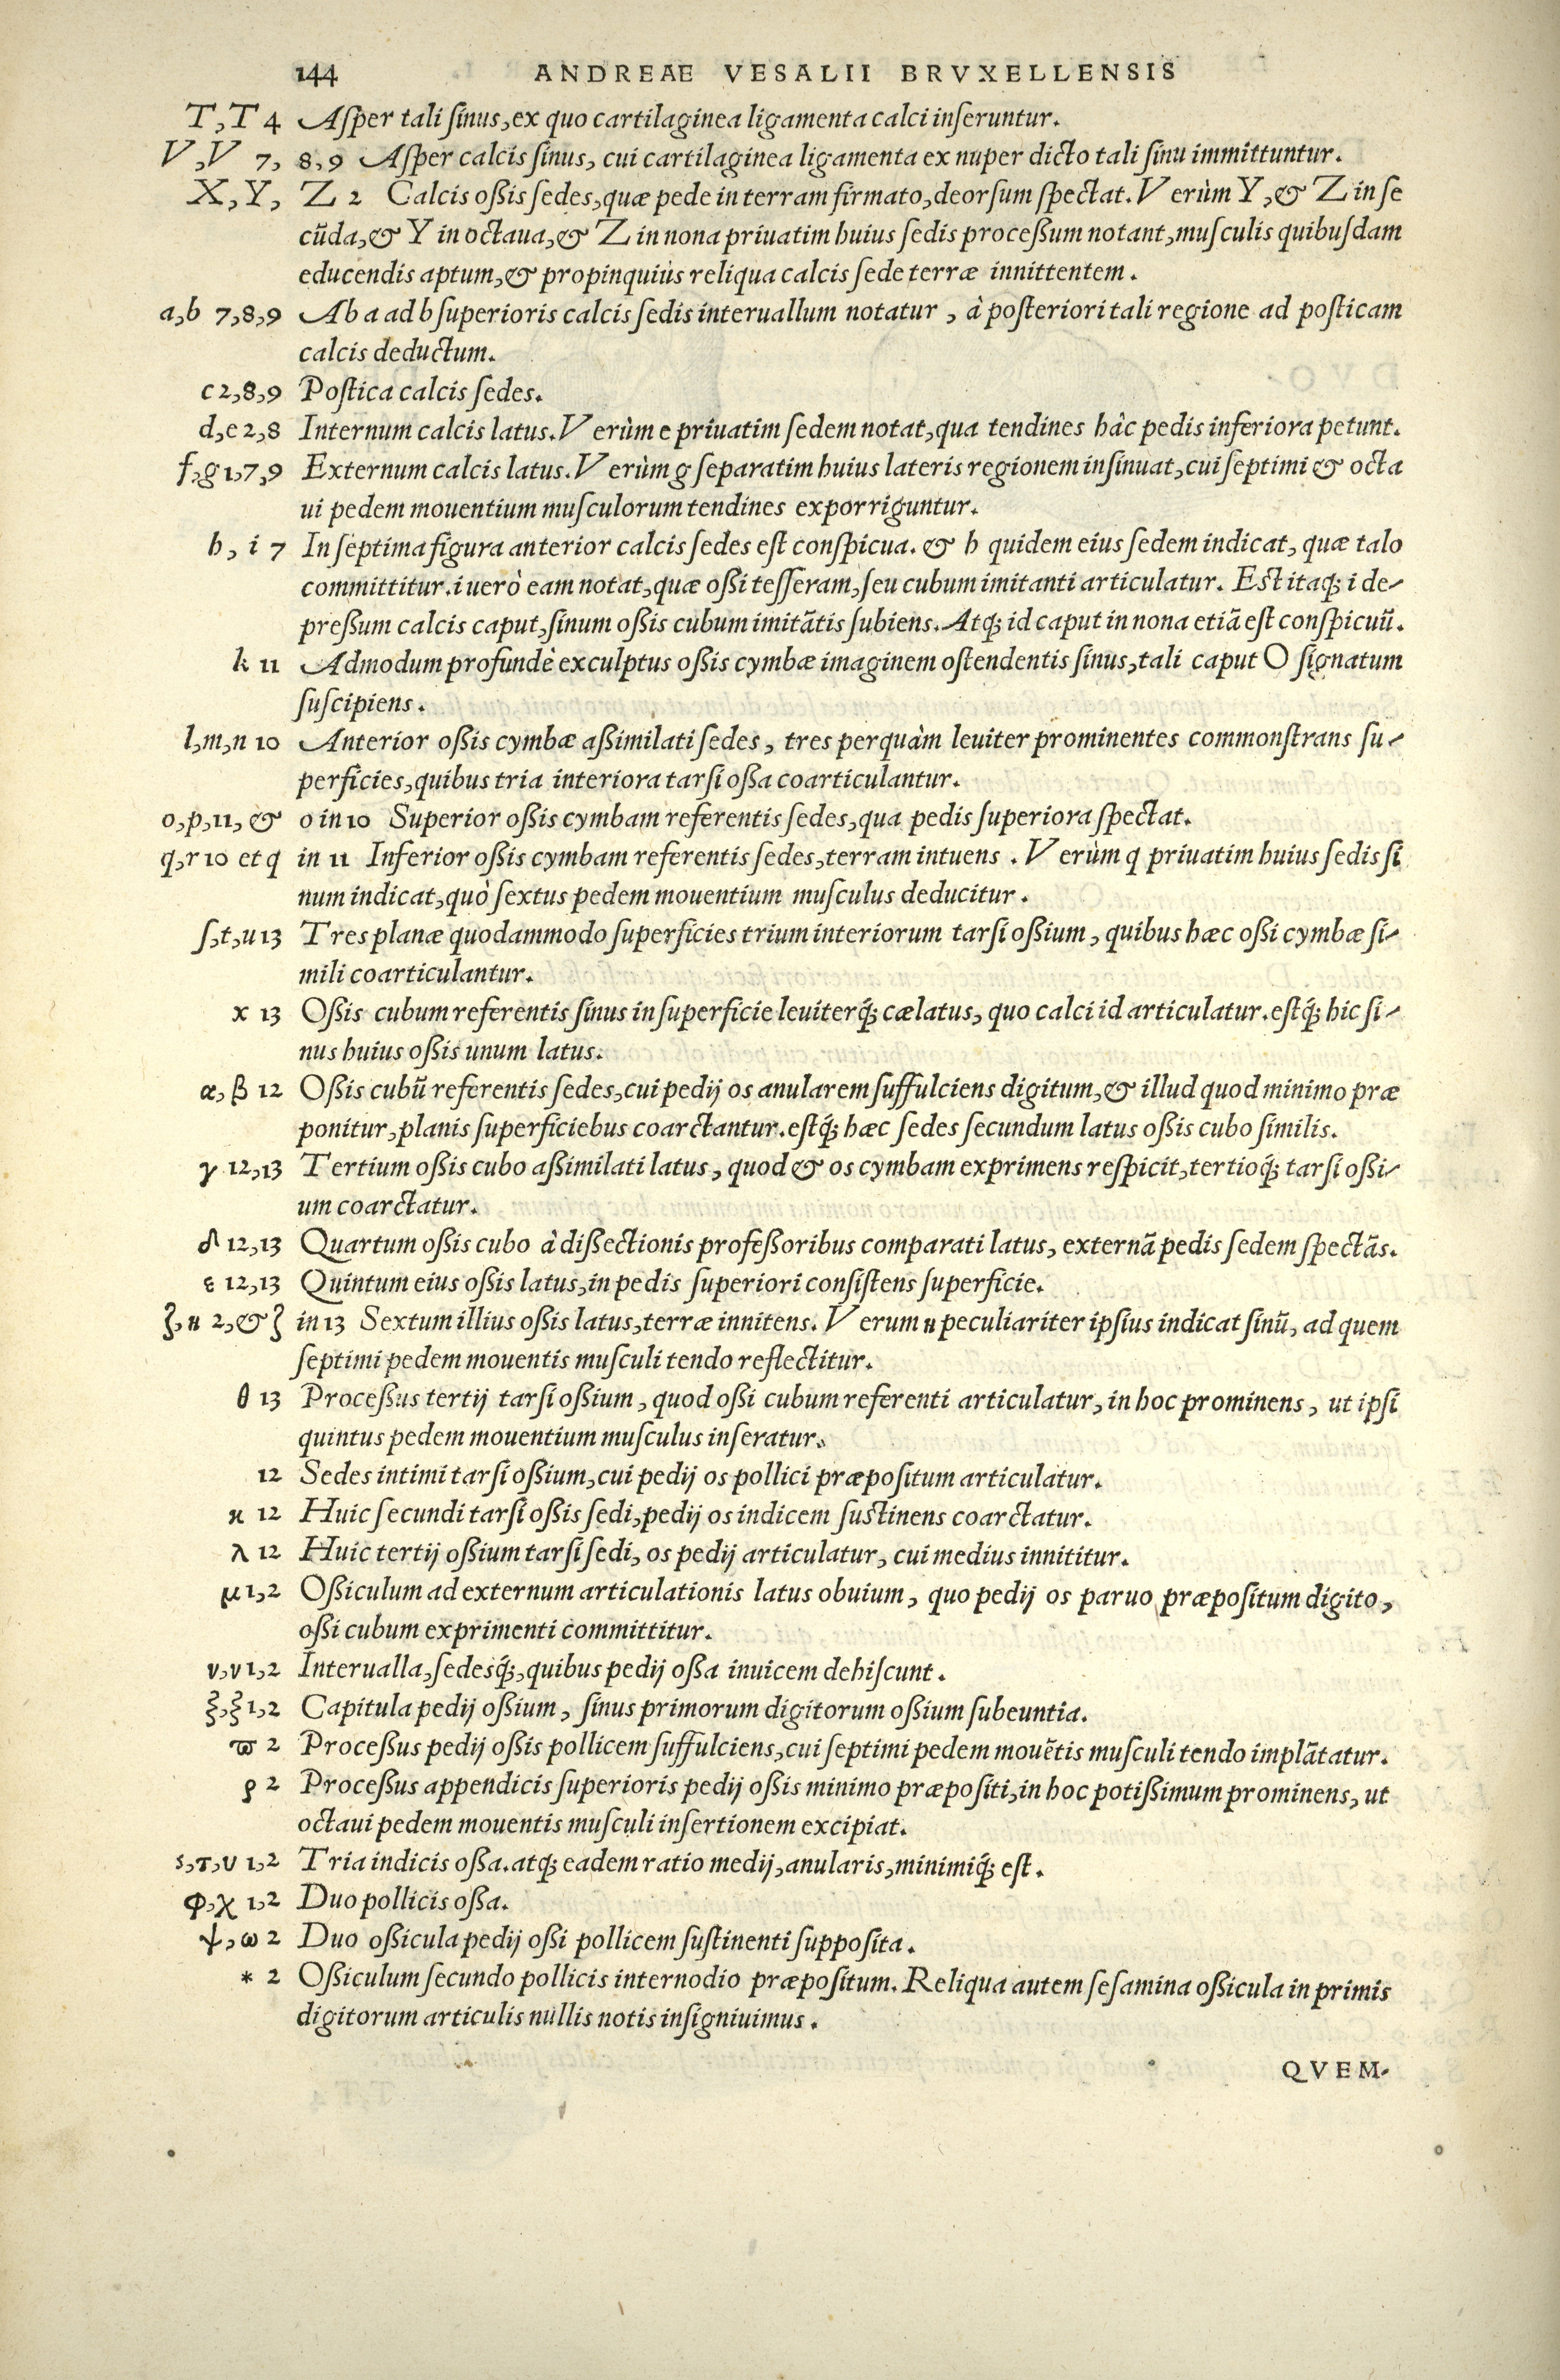 144 ANDREAE VESALII BRVXELLENSIS
T,T 4 Aſper tali ſinus,ex quo cartilaginea ligamenta calci inſeruntur.
V,V 7, 8,9 Aſper calcis ſinus, cui cartilaginea ligamenta ex nuper dicto tali ſinu immittuntur.
X,Y, Z 2 Calcis oßis ſedes,quæ pede in terram firmato,deorſum ſpectat. Verùm Y,& Z in ſe
cūda,& Y in octaua,& Z in nona priuatim huius ſedis proceßum notant,muſculis quibuſdam
educendis aptum,& propinquiùs reliqua calcis ſede terræ innittentem.
a,b 7,8,9 Ab a ad b ſuperioris calcis ſedis interuallum notatur, à poſteriori tali regione ad poſticam
calcis deductum.
c 2,8,9 Poſtica calcis ſedes.
d,e 2,8 Internum calcis latus. Verùm e priuatim ſedem notat,qua tendines hàc pedis inferiora petunt.
f,g 1,7,9 Externum calcis latus. Verùm g ſeparatim huius lateris regionem inſinuat,cui ſeptimi & octa
ui pedem mouentium muſculorum tendines exporriguntur.
h, i 7 In ſeptima figura anterior calcis ſedes eſt conſpicua. & h quidem eius ſedem indicat, quæ talo
committitur. i uerò eam notat,quæ oßi teſſeram,ſeu cubum imitanti articulatur. Eſt itaq; i de-
preßum calcis caput,ſinum oßis cubum imitātis ſubiens. Atq; id caput in nona etiā eſt conſpicuū.
k 11 Admodum profundè exculptus oßis cymbæ imaginem oſtendentis ſinus,tali caput O ſignatum
ſuſcipiens.
l,m,n 10 Anterior oßis cymbæ aßimilati ſedes, tres perquàm leuiter prominentes commonſtrans ſu-
perficies,quibus tria interiora tarſi oßa coarticulantur.
o,p,11, & o in 10 Superior oßis cymbam referentis ſedes,qua pedis ſuperiora ſpectat.
q,r 10 et q in 11 Inferior oßis cymbam referentis ſedes,terram intuens. Verùm q priuatim huius ſedis ſi
num indicat,quò ſextus pedem mouentium muſculus deducitur.
ſ,t,u 13 Tres planæ quodammodo ſuperficies trium interiorum tarſi oßium, quibus hæc oßi cymbæ ſi-
mili coarticulantur.
x 13 Oßis cubum referentis ſinus in ſuperficie leuiterq́; cælatus, quo calci id articulatur.eſtq́; hic ſi-
nus huius oßis unum latus.
α,β 12 Oßis cubū referentis ſedes,cui pedij os anularem ſuffulciens digitum,& illud quod minimo præ
ponitur,planis ſuperficiebus coarctantur.eſtq́; hæc ſedes ſecundum latus oßis cubo ſimilis.
γ 12,13 Tertium oßis cubo aßimilati latus, quod & os cymbam exprimens reſpicit,tertioq́; tarſi oßi-
um coarctatur.
δ 12,13 Quartum oßis cubo à dißectionis profeßoribus comparati latus, externā pedis ſedem ſpectās.
ε 12,13 Quintum eius oßis latus,in pedis ſuperiori conſiſtens ſuperficie.
ζ,η 2,& ζ in 13 Sextum illius oßis latus,terræ innitens. Verum η peculiariter ipſius indicat ſinū, ad quem
ſeptimi pedem mouentis muſculi tendo reflectitur.
θ 13 Proceßus tertij tarſi oßium, quod oßi cubum referenti articulatur, in hoc prominens, ut ipſi
quintus pedem mouentium muſculus inſeratur.
12 Sedes intimi tarſi oßium,cui pedij os pollici præpoſitum articulatur.
κ 12 Huic ſecundi tarſi oßis ſedi,pedij os indicem ſuſtinens coarctatur.
λ 12 Huic tertij oßium tarſi ſedi, os pedij articulatur, cui medius innititur.
μ 1,2 Oßiculum ad externum articulationis latus obuium, quo pedij os paruo præpoſitum digito,
oßi cubum exprimenti committitur.
ν,ν 1,2 Interualla,ſedesq́;,quibus pedij oßa inuicem dehiſcunt.
ξ,ξ 1,2 Capitula pedij oßium, ſinus primorum digitorum oßium ſubeuntia.
ϖ 2 Proceßus pedij oßis pollicem ſuffulciens,cui ſeptimi pedem mouētis muſculi tendo implātatur.
ρ 2 Proceßus appendicis ſuperioris pedij oßis minimo præpoſiti,in hoc potißimum prominens, ut
octaui pedem mouentis muſculi inſertionem excipiat.
s,τ,υ 1,2 Tria indicis oßa.atq; eadem ratio medij,anularis,minimiq́; eſt.
φ,χ 1,2 Duo pollicis oßa.
ψ,ω 2 Duo oßicula pedij oßi pollicem ſuſtinenti ſuppoſita.
* 2 Oßiculum ſecundo pollicis internodio præpoſitum. Reliqua autem ſeſamina oßicula in primis
digitorum articulis nullis notis inſigniuimus.
QVEM-